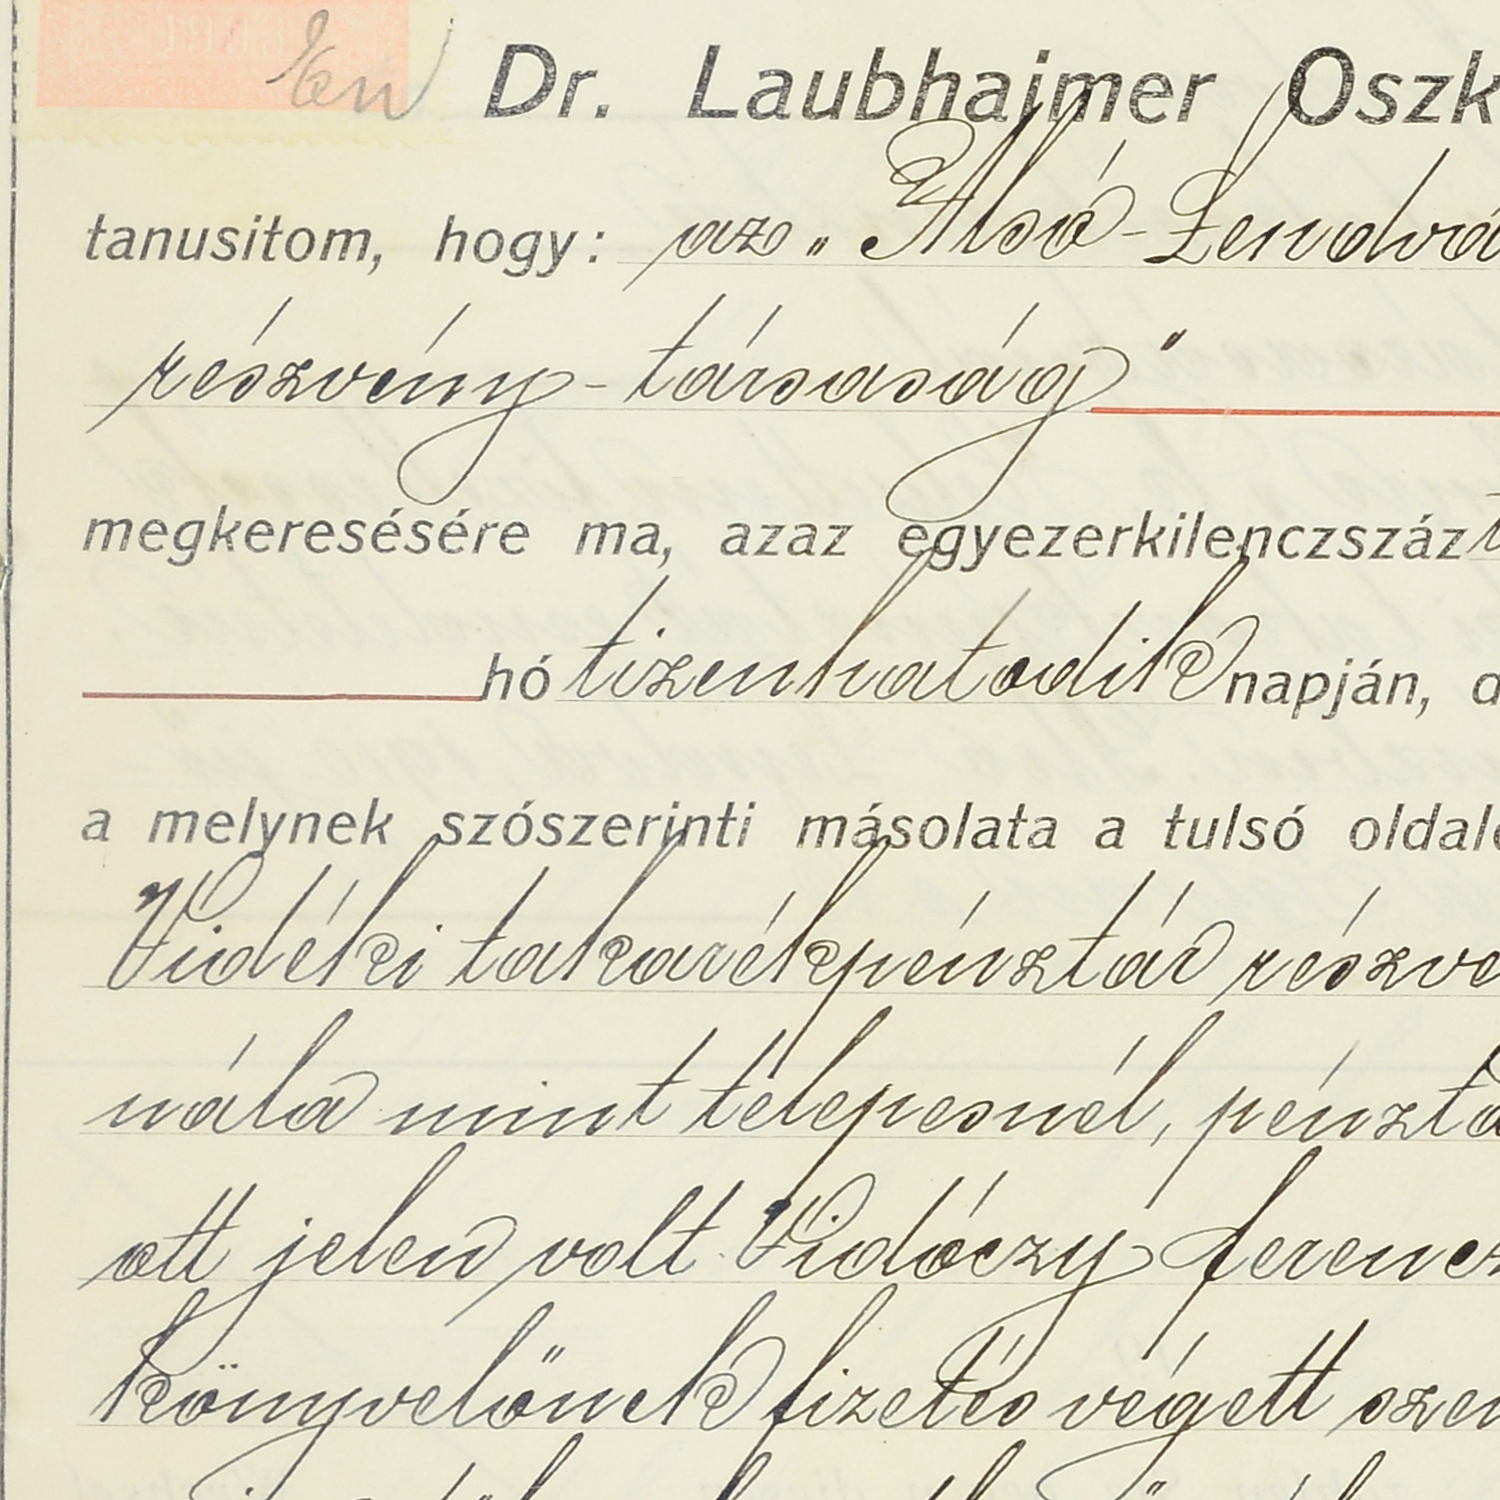 Én Dr. Laubhaimer Oszk
tanusitom, hogy: az „Alsó-Lendvá
részvény-társaság"
megkeresésére ma, azaz egyezerkilenczszáz
hó tizenhatodik napján, d
a melynek szószerinti másolata a tulsó oldal
Vidéki takarékpénztár részvé
nála mint telepesnél, pénztá
ott jelen volt Vidóczy Ferencz
könyvelőnek fizetés végett szem